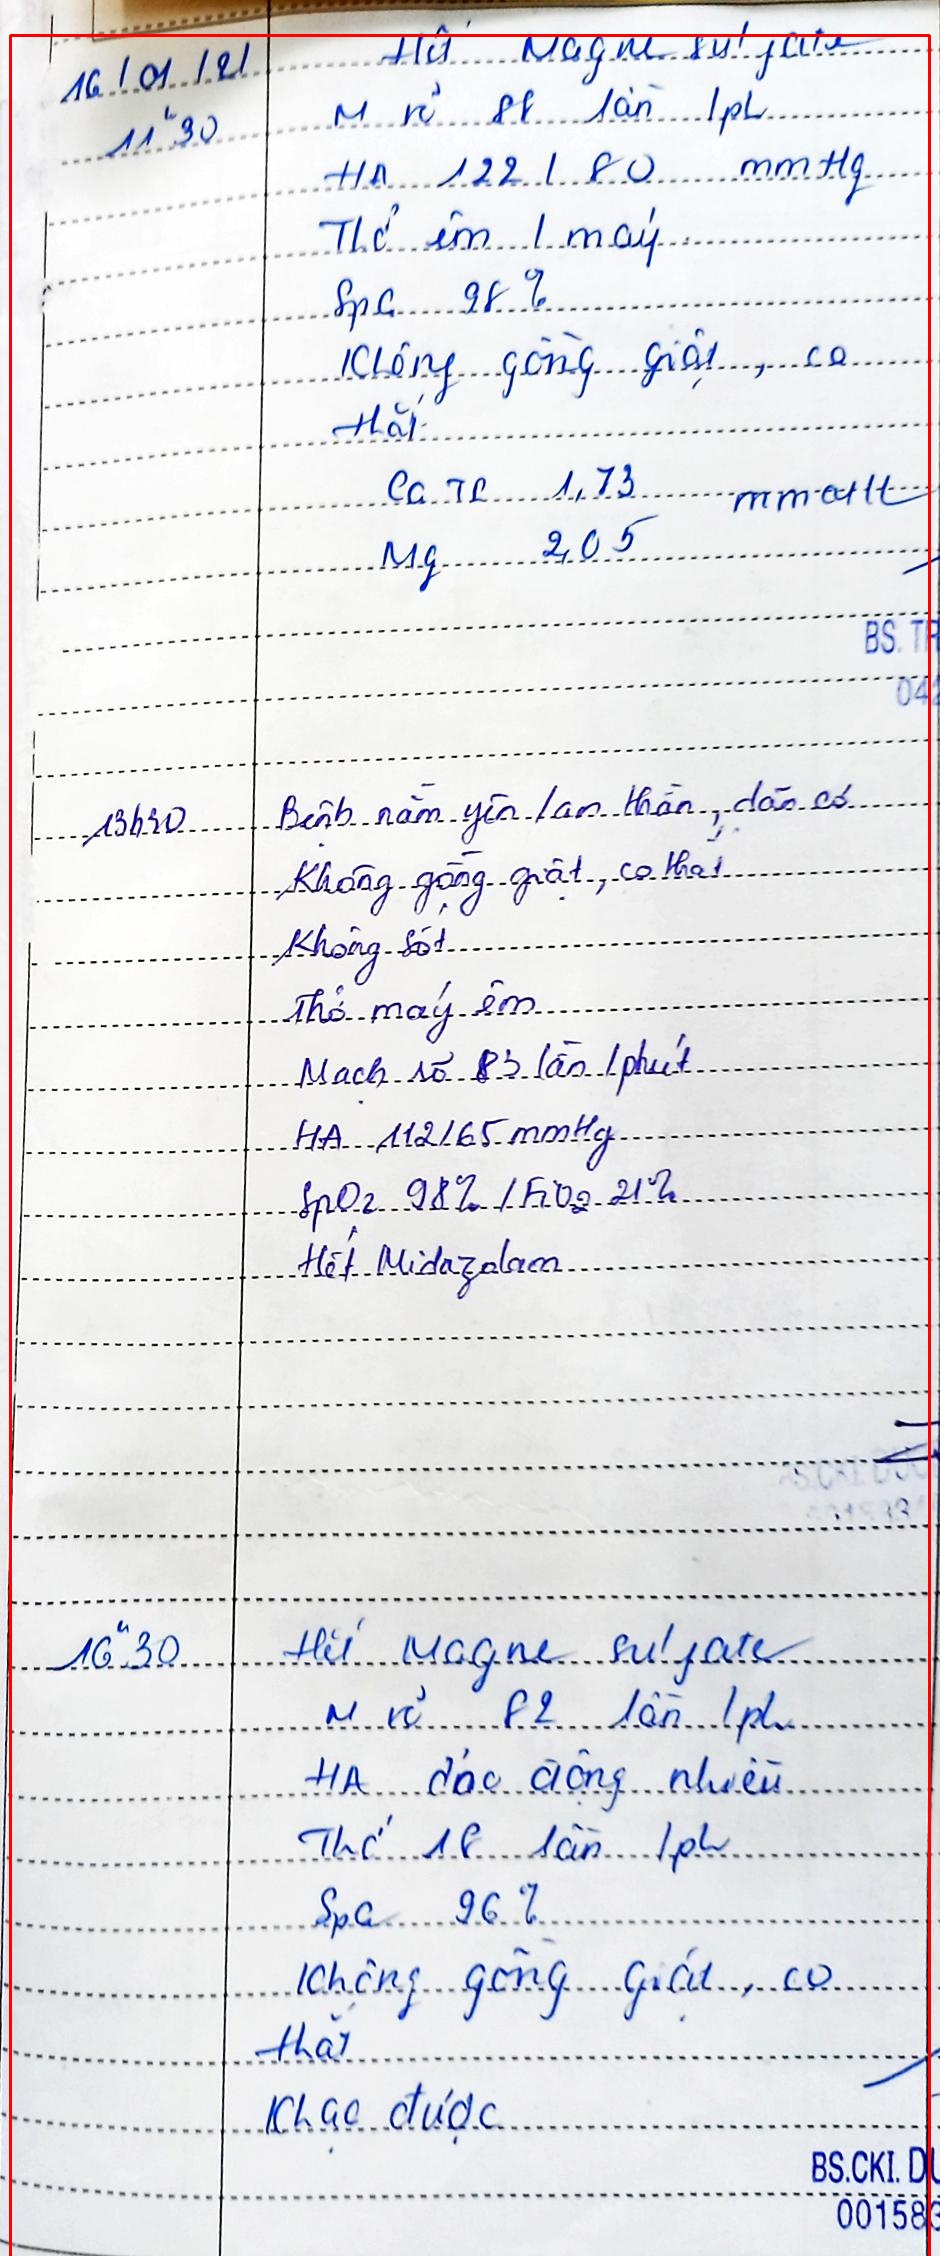 16/01/21 Hết Magne sulfate
11h30 M rõ 88 lần/ph
HA 122/80 mmHg
Thở êm/máy
SpO 98%
Không gồng giật, co
thắt
Ca TP 1,73 mmol/l
Mg 2,05
BS. TR
042
13h30 Bệnh nằm yên/an thần, dãn cơ
Không gồng giật, co thắt
Không sốt
Thở máy êm
Mạch rõ 83 lần/phút
HA 112/65 mmHg
SpO2 98% / FiO2 21%
Hết Midazolam
BS.CKI. DƯƠ
001583
16h30 Hết Magne sulfate
M rõ 82 lần/ph
HA dao động nhiều
Thở 18 lần/ph
SpO 96%
Không gồng giật, co
thắt
Khạc được
BS.CKI. DƯ
001583